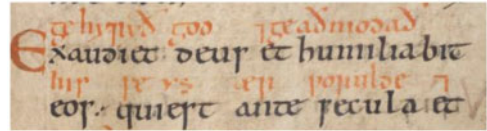 ge hyryð god ⁊geadmodað
Exaudiet deus et humiliabit
his se ys ær worulde ⁊
eos· qui est ante secula et